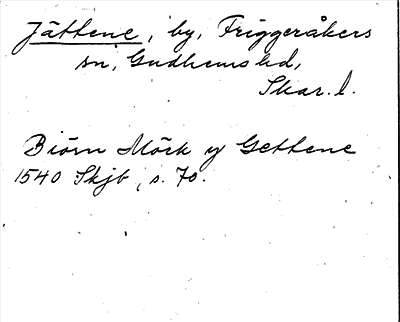 Jättene, by, Friggeråkers
sn, Gudhems hd,
Skar. l.
Biörn Mörk y Gettene
1540 Skjb, s. 70.